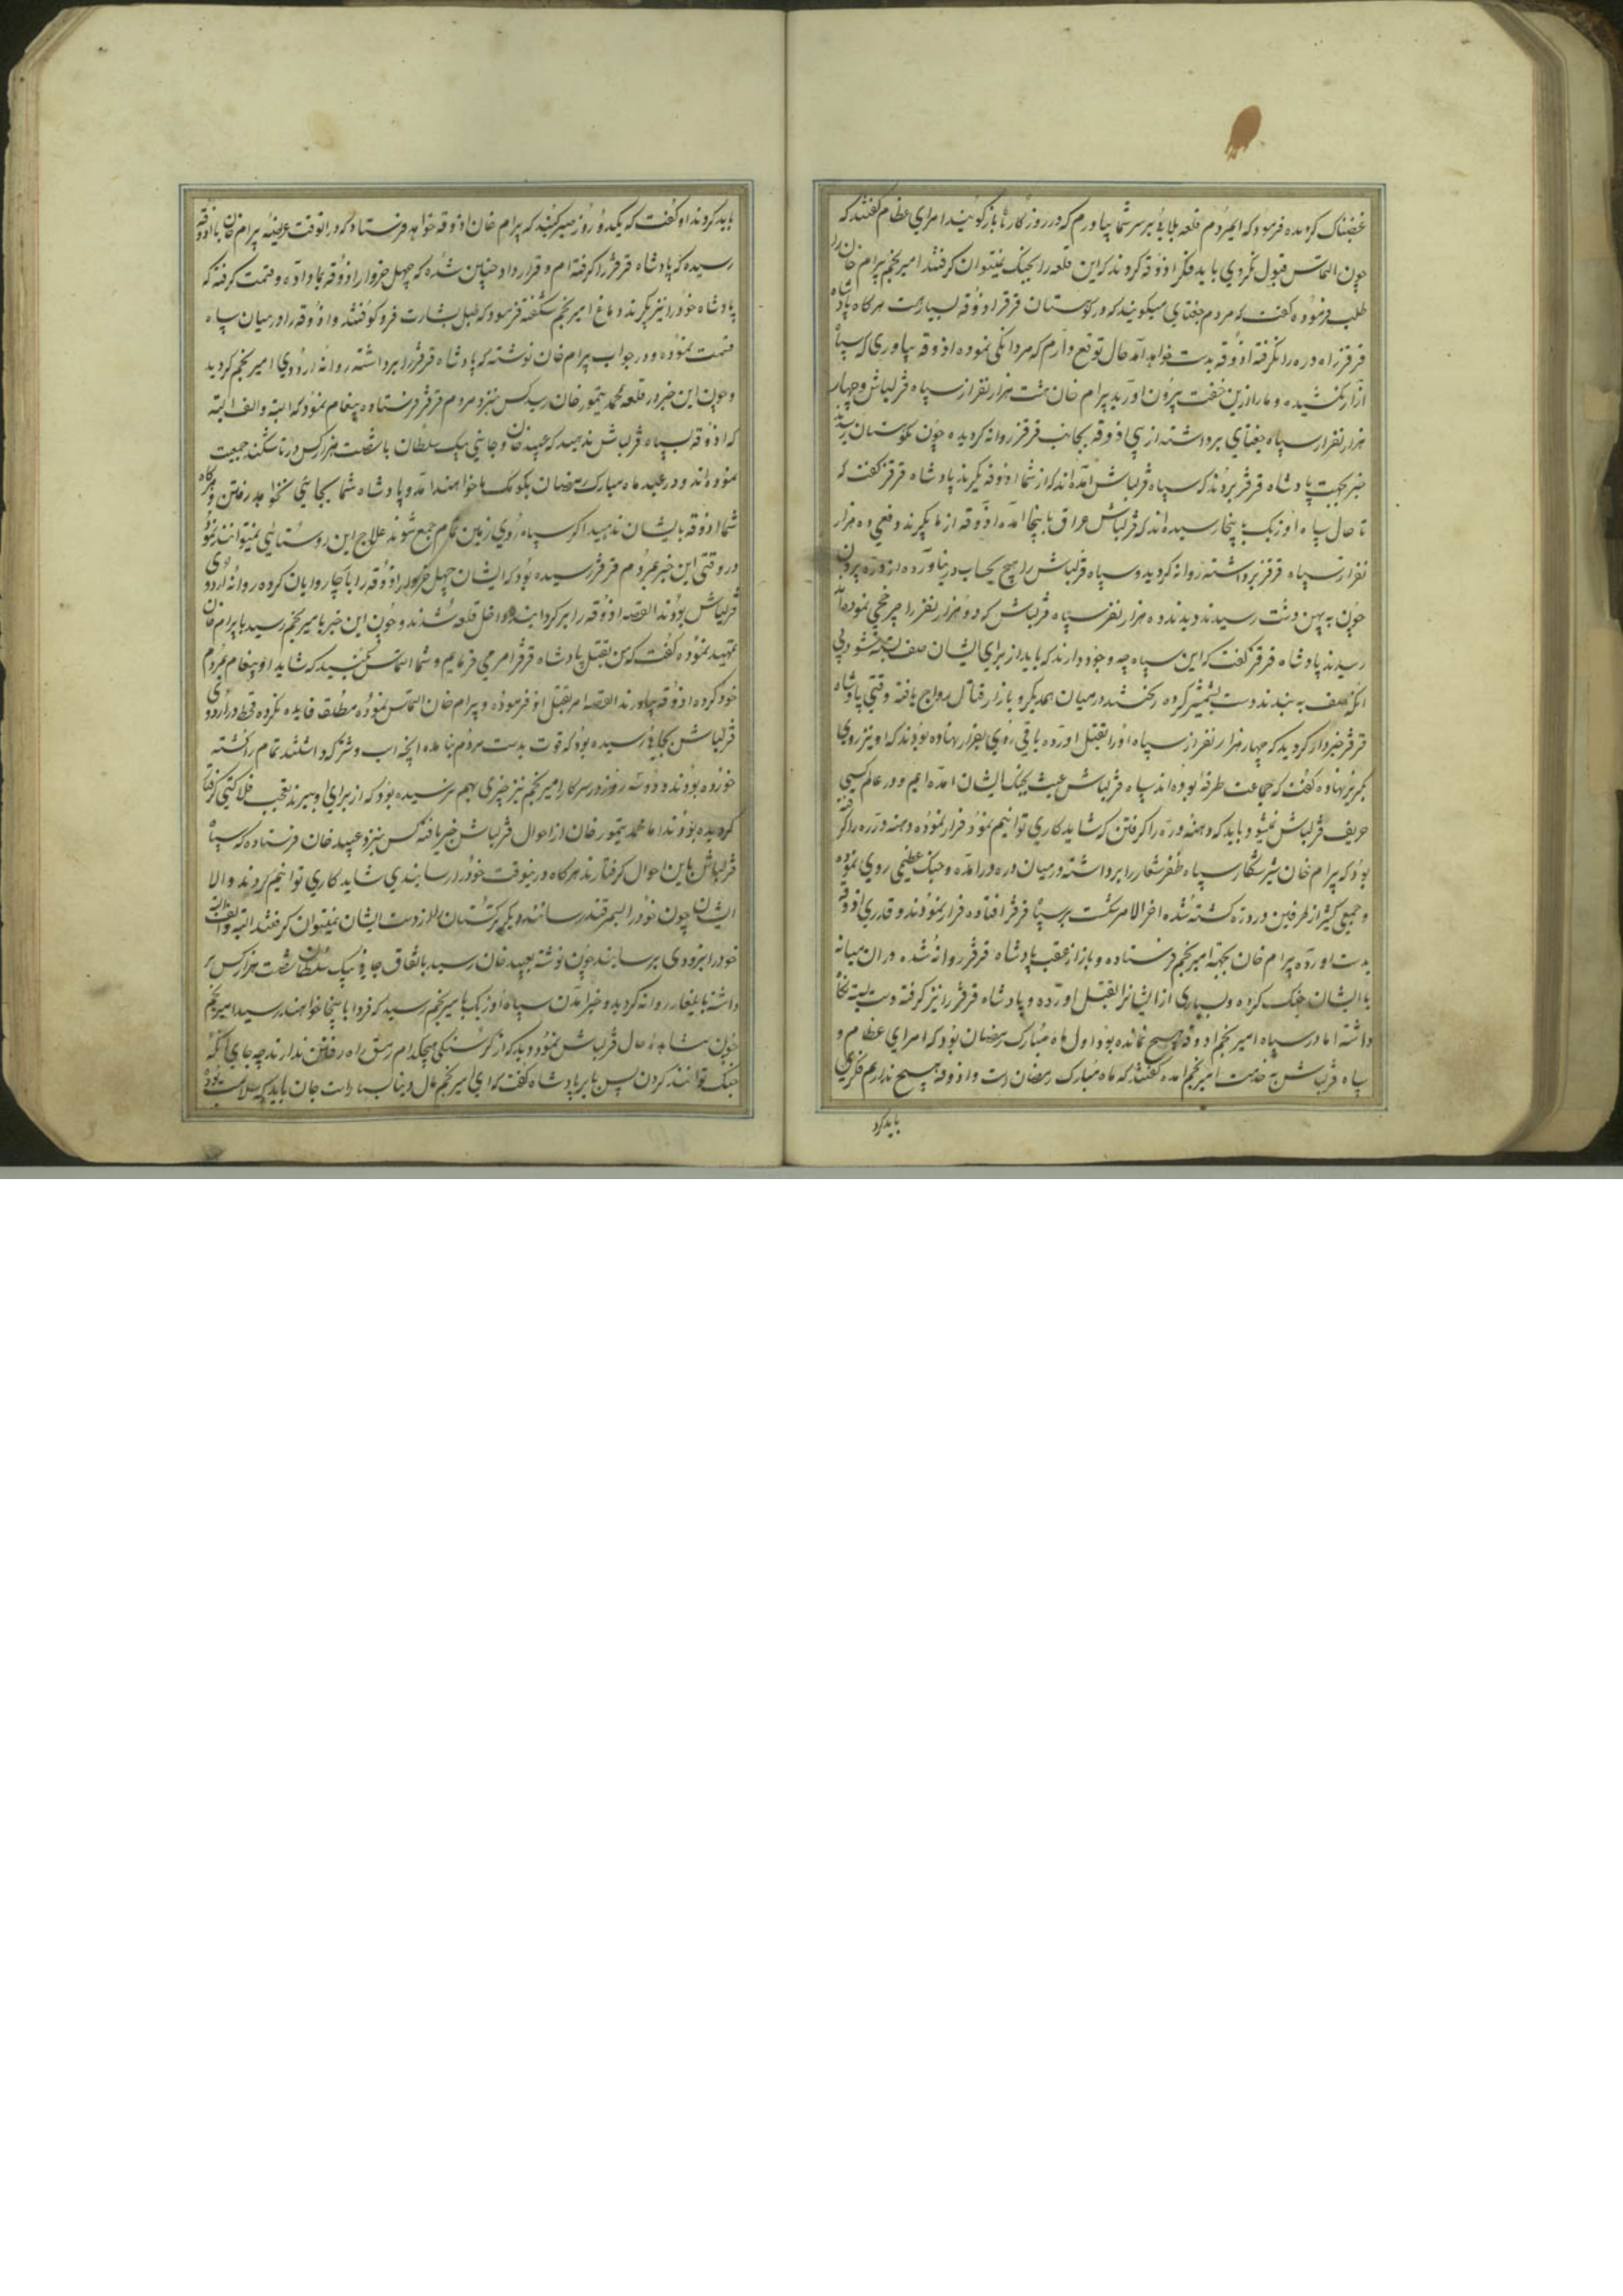 غضبناک کردیده فرمود که ایمردم قلعه بلایی بر سر شما بیاورم که در روزکارها بازکویند امرای عظام کفتند که
چون التماس قبول نکردی باید فکر اذوقه کردند که این قلعه را بجنک نمیتوان کرفتند امیر نجم بیرام خان را
طلب فرموده کفت که مردم جغتای میکویند که در کوستان قرقز اذوقه بسیارست هرکاه پادشاه
قرقز راه دره را نکرفته اذوقه بدست خواهد آمد حال توقع دارم که مردانکی نموده اذوقه بیاوری که سپاه
آزار نکشیده و ما را ازین خفت بیرون اورید بیرام خان هشت هزار نفر از سپاه قزلباش و چهار
هزار نفر از سپاه جغتای برداشته از پی اذوقه بجانب قرقز روانه کردیده چون بکوستان رسیدند
خبر بجهت پادشاه قرقز بردند که سپاه قزلباش آمده‌اند که از شما اذوقه بکیرند پادشاه قرقز کفت که
تا حال سپاه اوزبک باینجا رسیده‌اند که قزلباش عراق باینجا امده اذوقه از ما بکیرند وفعی ده هزار
نفر از سپاه قرقز برداشته روانه کردید و سپاه قزلباش را هیچ بحساب در نیاورده از دره بیرون
چون به پهن دشت رسیدند دیدند ده هزار نفر سپاه قزلباش که دو هزار نفر را چرخچی نموده‌اند
رسیدند پادشاه قرقز کفت که این سپاه چه وجود دارند که باید از برای ایشان صف بسته شود بی
انکه صف به بندند دست بشمشیر کرده ریختند در میان همدیکر و بازار قتال رواج یافته وقتی پادشاه
قرقز خبردار کردید که چهار هزار نفر از سپاه او را بقتل اورده باقی روی بفرار نهاده بودند که او نیز روی
بکریز نهاده کفت که جماعت طرفه بوده‌اند سپاه قزلباش عبث بجنک ایشان امده ایم و در عالم کسی
حریف قزلباش نمیشود باید که دهنه دره را کرفتن که شاید کاری توانیم نمود فرار نموده دهنه دره را کرفته
بود که بیرام خان شیر شکار سپاه ظفر شعار را برداشته در میان دره درامده و جنک عظیمی روی نموده
و جمعی کثیر از طرفین در دره کشته شده اخر الامر شکست بر سپاه قرقز افتاده فرار نمودند و قدری اذوقه
بدست اورده بیرام خان بجهته امیر نجم فرستاده و باز از عقب پادشاه قرقز روانه شده در ان میانه
با ایشان جنک کرده و بسیاری از ایشانرا بقتل اورده و پادشاه قرقز را نیز کرفته دست بسته نکاه
داشته اما در سپاه امیر نجم اذوقه هیچ نمانده بود و اول ماه مبارک رمضان بود که امرای عظام و
سپاه قزلباش بخدمت امیر نجم امده کفتند که ماه مبارک رمضان است و اذوقه هیچ نداریم فکری
باید کرد
باید کردند او کفت که یکدو روز صبر کنید که بیرام خان اذوقه خواهد فرستاد که در انوقت عریضه بیرام خان با اذوقه
رسیده که پادشاه قرقز را کرفته‌ام و قرارداد چنین شده که چهل خروار اذوقه بما داده و قیمت کرفته که
پادشاه خود را نیز بکیرند دماغ امیر نجم شکفته فرمود که طبل بشارت فرو کوفتند و اذوقه را در میان سپاه
قسمت نموده و در جواب بیرام خان نوشته که پادشاه قرقز را برداشته روانه اردوی امیر نجم کردید
و چون این خبر در قلعه محمد تیمور خان رسید کس بنزد مردم قرقز فرستاده پیغام نمود که البته و الف البته
که اذوقه بسپاه قزلباش ندهید که عبید خان و جانی بیک سلطان با شصت هزار کس در تاشکند جمعیت
نموده‌اند و در عید ماه مبارک رمضان بکومک ما خواهند امد و پادشاه شما بجایی نخواهد رفتن و هرکاه
شما اذوقه بایشان ندهید اکر سپاه روی زمین تمام جمع شوند علاج این روستایی نمیتوانند نمود
در وقتی این خبر بمردم قرقز رسیده بود که ایشان چهل خروار اذوقه را با چاروایان کرده روانه اردوی
قزلباش بودند القصه اذوقه را برکردانیده داخل قلعه شدند و چون این خبر بامیر نجم رسید با بیرام خان
تمهید نموده کفت که من بقتل پادشاه قرقز امر می فرمایم و شما التماس بکنید که شاید او پیغام بمردم
خود کرده اذوقه بیاورند القصه امر بقتل او فرموده و بیرام خان التماس نموده مطلقه فایده نکرده قحط در اردوی
قزلباش بجایی رسیده بود که قوت بدست مردم نیامده انچه اسب و شتر که داشتند تمام را کشته
خورده بودند و دو سه روز در سرکار امیر نجم نیز چیزی بهم نرسیده بود که از برای او ببرند بعجب فلاکتی کرفتار
کردیده بودند اما محمد تیمور خان از احوال قزلباش خبر یافته کس بنزد عبید خان فرستاده که سپاه
قزلباش باین احوال کرفتارند هرکاه درینوقت خود را رسانیدی شاید کاری توانیم کردند و الا
ایشان چون خود را بسمرقند رسانند دیکر ترکستان را از دست ایشان نمیتوان کرفتند البته و الف البته
خود را بزودی برسانید چون نوشته بعبید خان رسید باتفاق جانی بیک سلطان شصت هزار کس بر
داشته بایلغار روانه کردید و خبر امدن سپاه اوزبک بامیر نجم رسید که فردا باینجا خواهند رسید امیر نجم
چون مشاهده حال قزلباش نمود دید که از کرسنکی هیچکدام رمق راه رفتن ندارند چه جای انکه
جنک توانند کردن پس بابر پادشاه کفت که ای امیر نجم مال دنیا بسیار است جان باید که بسلامت بود